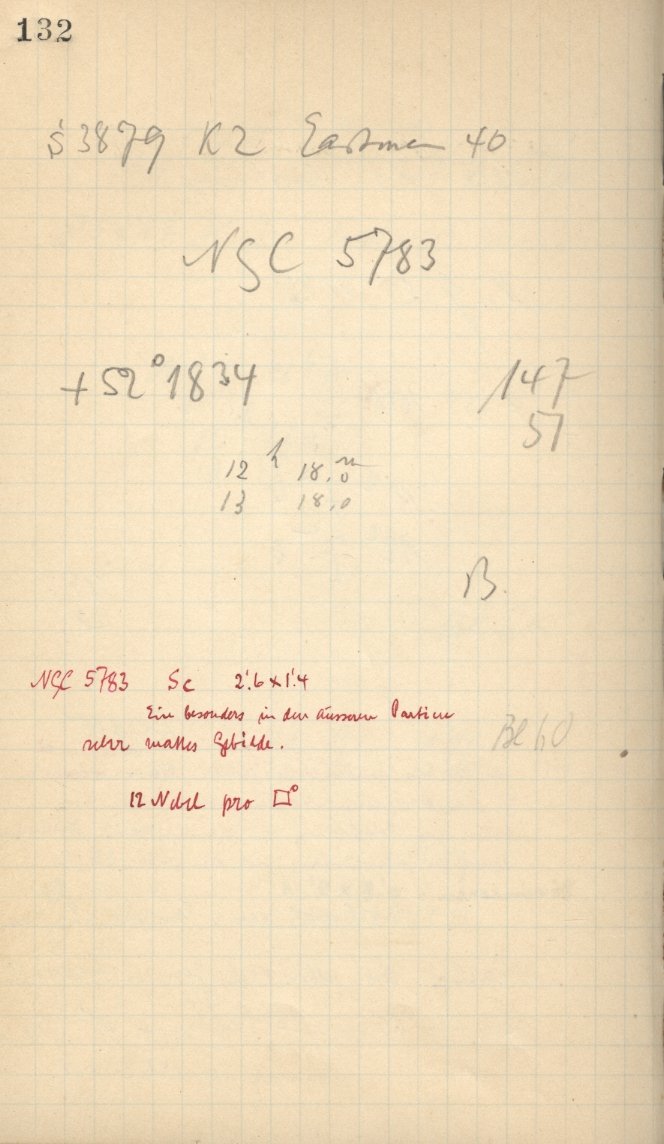 132
S 3879 K2 Eastman 40
NGC 5783
+52° 1834 147
57
12 h 18.0 m
13 18.0
B.
NGC 5783 Sc 2'.6 x 1'.4
Ein besonders in den äusseren Partien
sehr mattes Gebilde.
12 Nebel pro □°